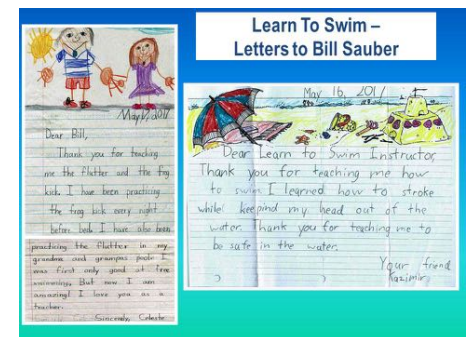 Learn To Swim –
Letters to Bill Sauber
May 2017
Dear Bill,
Thank you for teaching
me the flutter and the frog
kick. I have been practicing
the frog kick every night
before bed. I have also been
practicing the flutter in my
grandma and grampas pool. I
was first only good at free
swimming, But now I am
amazing! I love you as a
teacher.
Sincerely, Celeste
May 16, 2017
Dear Learn to Swim Instructor,
Thank you for teaching me how
to swim. I learned how to stroke
while keepind my head out of the
water. Thank you for teaching me to
be safe in the water.
Your friend
Kazimir